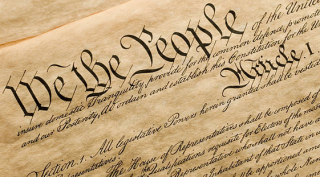 We the People of the United
insure domestic Tranquility, provide for the common defence, promote
and our Posterity, do ordain and establish this Constitution for the Uni
Article. I.
Section. 1. All legislative Powers herein granted shall be vested
The House of Representatives shall be composed of
Qualifications requisite for Electors of the most
Representative who shall not have a
Inhabitant of that State in